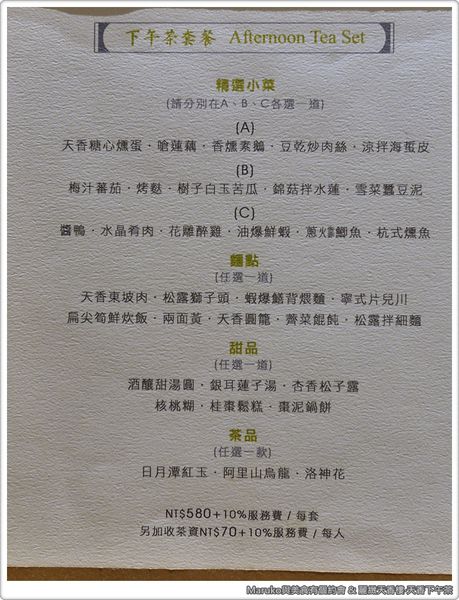 下午茶套餐 Afternoon Tea Set
精選小菜
(請分別在A、B、C各選一道)
(A)
天香糖心燻蛋‧嗆蓮藕‧香燻素鵝‧豆乾炒肉絲‧涼拌海蜇皮
(B)
梅汁蕃茄‧烤麩‧樹子白玉苦瓜‧錦菇拌水蓮‧雪菜蠶豆泥
(C)
醬鴨‧水晶肴肉‧花雕醉雞‧油爆鮮蝦‧蔥㸆鯽魚‧杭式燻魚
麵點
(任選一道)
天香東坡肉‧松露獅子頭‧蝦爆鱔背煨麵‧寧式片兒川
扁尖筍鮮炊飯‧兩面黃‧天香圓籠‧薺菜餛飩‧松露拌細麵
甜品
(任選一道)
酒釀甜湯圓‧銀耳蓮子湯‧杏香松子露
核桃糊‧桂棗鬆糕‧棗泥鍋餅
茶品
(任選一款)
日月潭紅玉‧阿里山烏龍‧洛神花
NT$580+10%服務費 / 每套
另加收茶資NT$70+10%服務費 / 每人
Maruko與美食有個約會 & 麗緻天香樓-天香下午茶